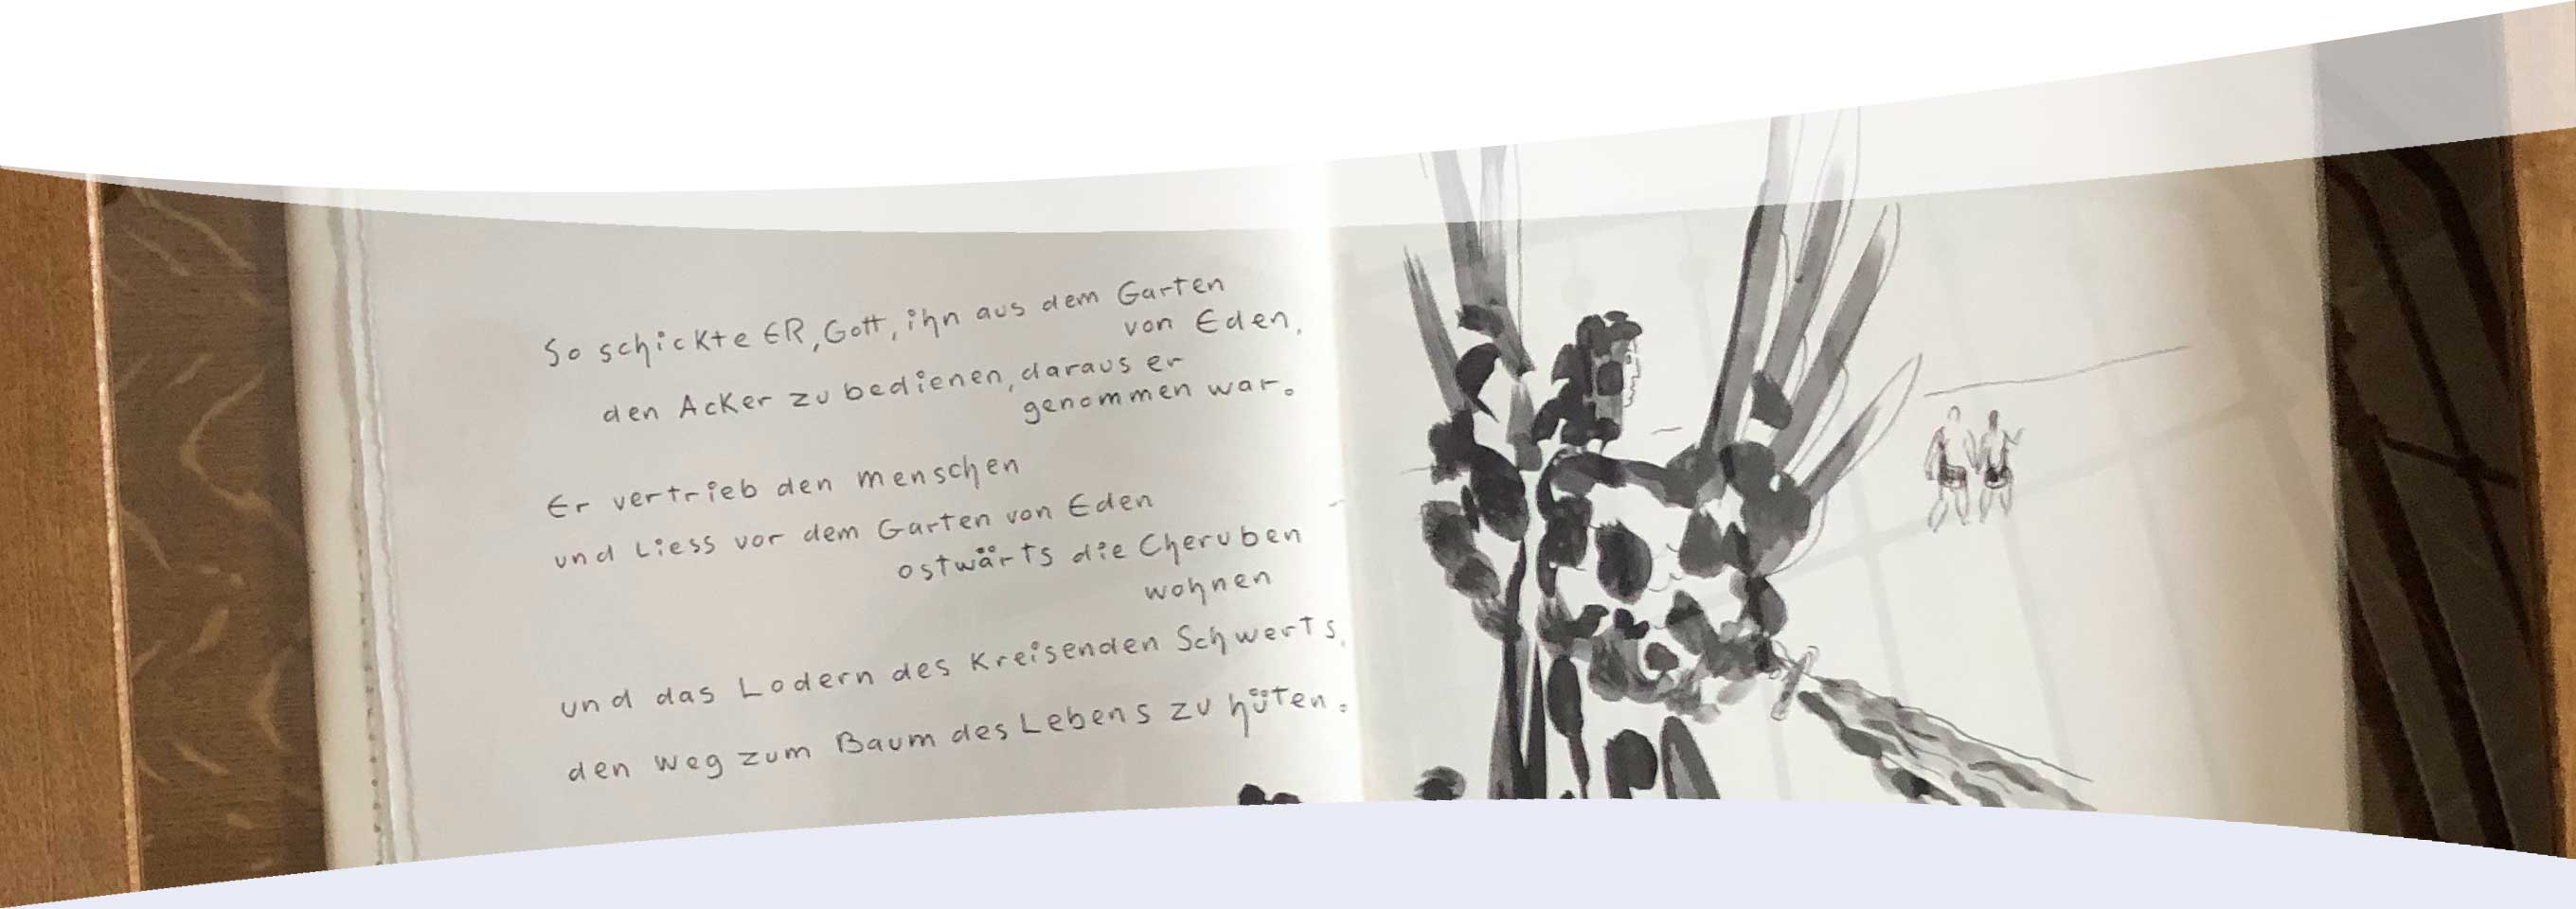 So schickte ER, Gott, ihn aus dem Garten
von Eden,
den Acker zu bedienen, daraus er
genommen war.
Er vertrieb den menschen
und Liess vor dem Garten von Eden
ostwärts die Cheruben
wohnen
und das Lodern des Kreisenden Schwerts,
den weg zum Baum des Lebens zu hüten.